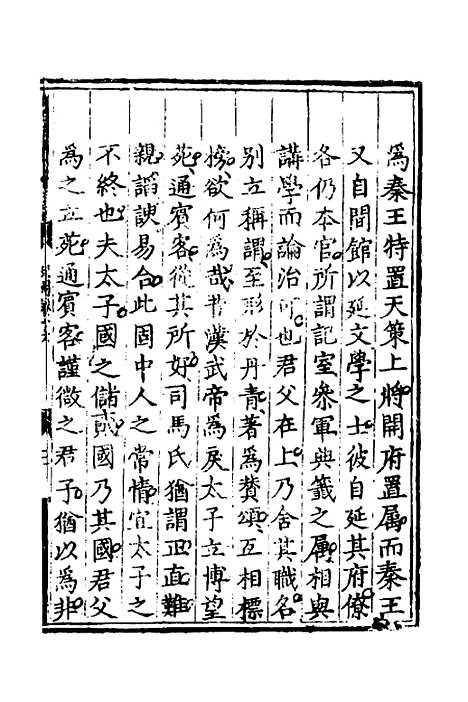 為秦王特置天策上將開府置属而秦王
又自開館以延文學之士彼自延其府僚
各仍本官所謂記室叅軍典籤之屬相與
講學而論治可也君父在上乃舍其職名
别立稱謂至形於丹青著為贊頌互相標
榜欲何為哉昔漢武帝為戾太子立博望
苑通賓客從其所好司馬氏猶謂正直難
親謟諛易合此固中人之常情宜太子之
不終也夫太子國之儲貳國乃其國君父
為之立苑通賓客謹微之君子猶以為非